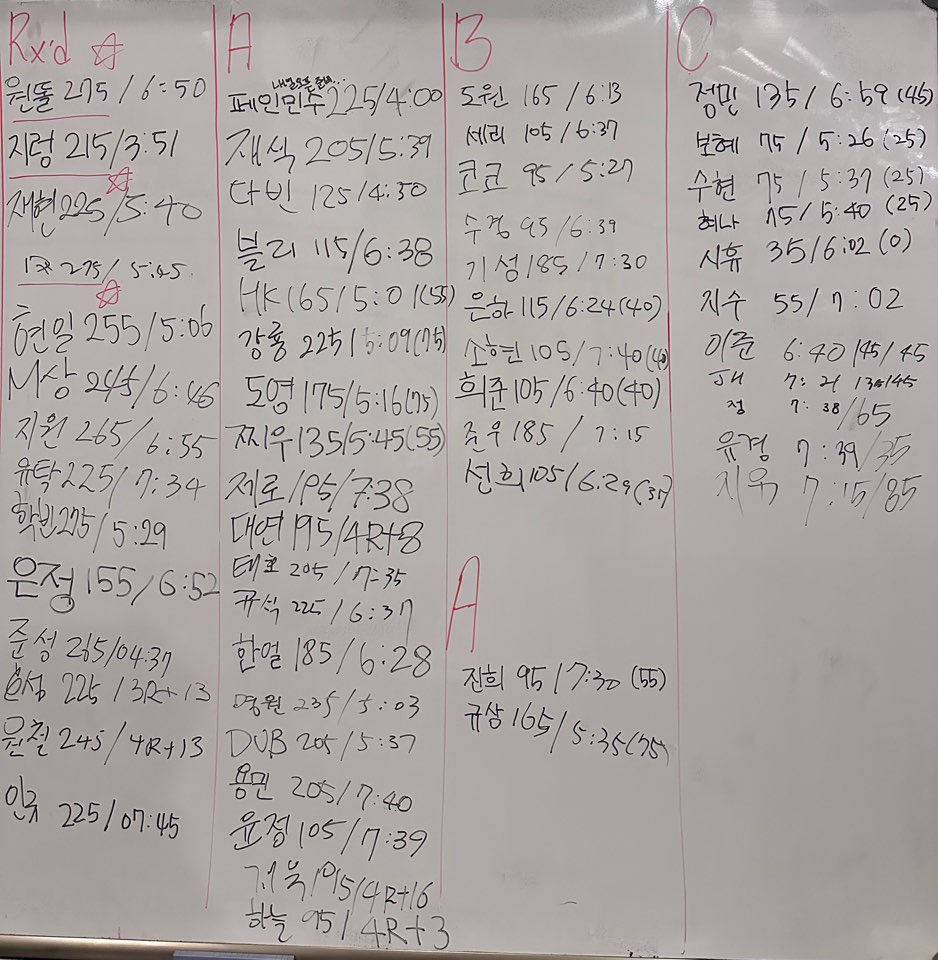 Rx'd ☆
원돌 275 / 6:50
지렁 215/3:51
재현 225/5:40
275/ 5:45
현일 255/5:06
M상 245/6:46
지원 265/6:55
유탁 225/7:34
학빈 275/5:29
은정 155/6:52
준성 265/04:37
225 / 3R+13
원철 245/4R+13
인국 225/07:45
A
페인민수 225/4:00
재식 205/5:39
다빈 125/4:30
블리 115/6:38
HK 165/5:01(55)
강룡 225/5:09(75)
도영 175/5:16(75)
찌우 135/5:45(55)
제로 195/7:38
대연 195/4R+8
태호 205/7:35
규식 225/6:37
한얼 185/6:28
영원 235/5:03
DUB 205/5:37
용민 205/7:40
윤정 105/7:39
195/4R+16
하늘 95/4R+3
B
도원 165/6:13
세리 105/6:37
코코 95/5:27
수경 95/6:39
기성 185/7:30
은하 115/6:24(40)
소현 105/7:40(40)
희준 105/6:40(40)
준우 185/7:15
선희 105/6:29
A
진희 95/7:30(55)
규상 165/5:35(75)
C
정민 135/6:59(45)
보혜 75/5:26(25)
수현 75/5:37(25)
혜나 75/5:40(25)
시휴 35/6:02(0)
지수 55/7:02
이준 6:40/45/45
7:21
정 7:38/65
유경 7:39/35
지욱 7:15/85